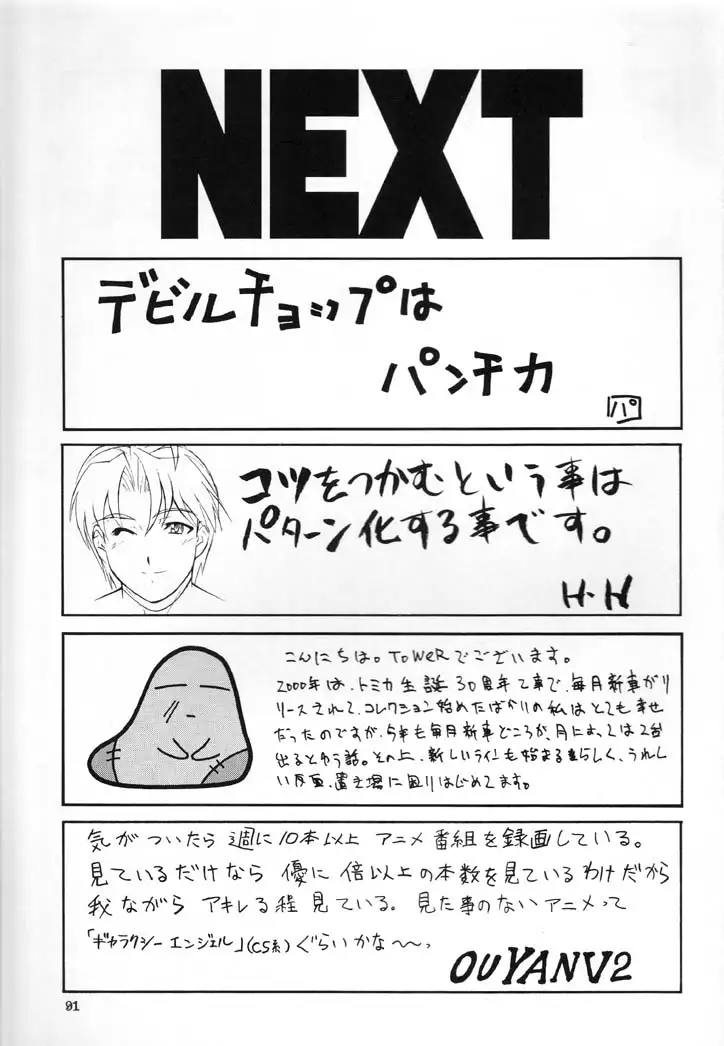 NEXT
デビルチョップは
パンチカ
パ
コツをつかむという事は
パターン化する事です。
H・H
こんにちは。TOWERでございます。
2000年は、トミカ生誕30周年て事で、毎月新車がリ
リースされて、コレクション始めたばかりの私はとても幸せ
だったのですが、今年も毎月新車どころか、月によっては2台
出るとゆう話。その上、新しいラインも始まるらしく、うれし
い反面、置き場に困りはじめてます。
気がついたら 週に10本以上 アニメ 番組を録画している。
見ているだけなら 優に 倍以上の本数を見ているわけだから
我ながら アキレる程 見ている。見た事のないアニメって
「ギャラクシーエンジェル」(CS系)ぐらいかな〜〜っ
OUYANV2
91